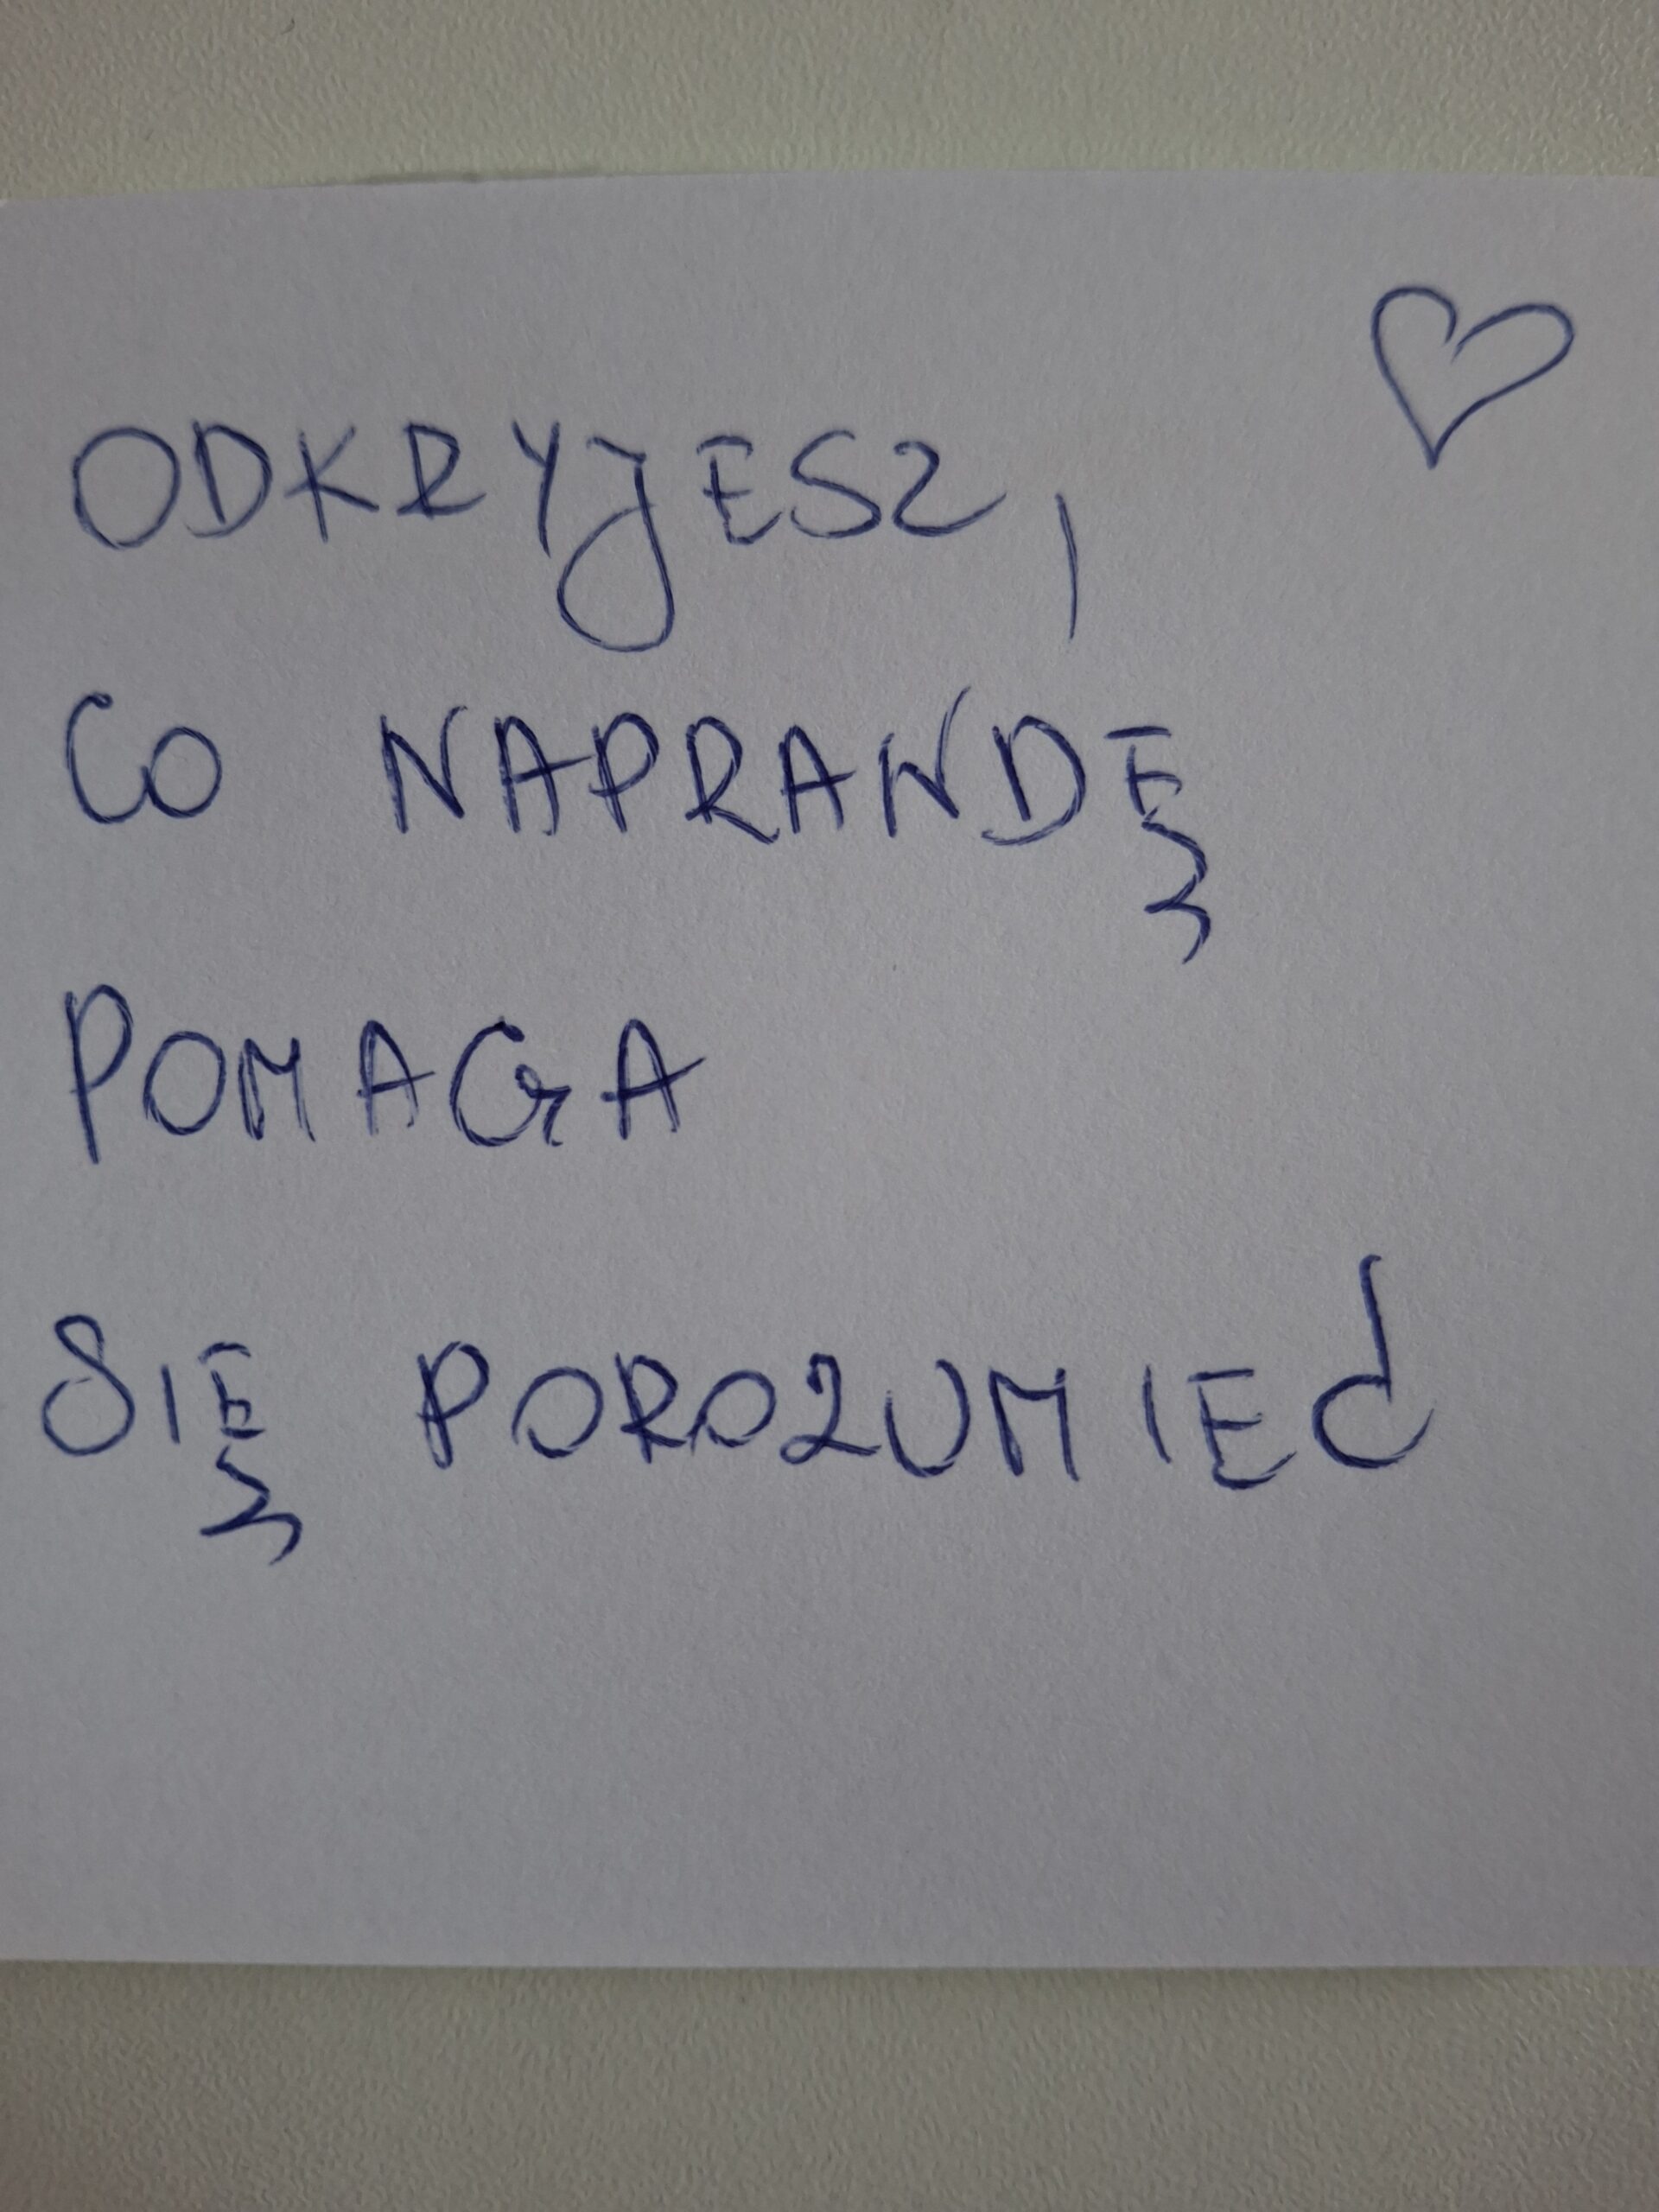 ODKRYJESZ,
CO NAPRAWDĘ
POMAGA
SIĘ POROZUMIEĆ